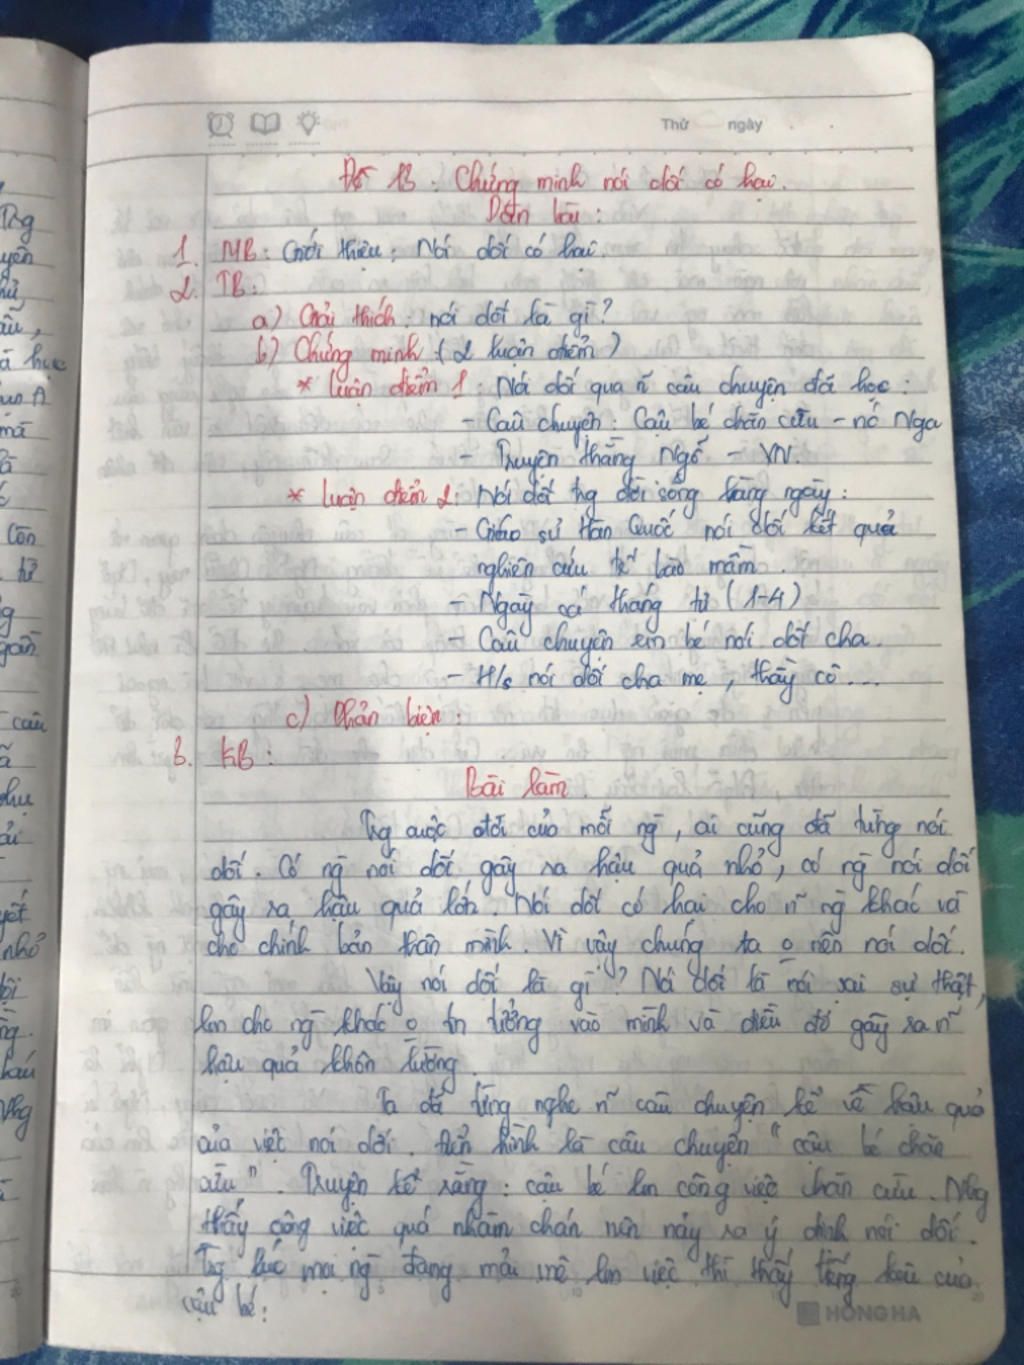 Thứ ngày
Đề 13: Chứng minh nói dối có hại.
Dàn bài:
1. MB: Giới thiệu: Nói dối có hại.
2. TB:
a) Giải thích: nói dối là gì?
b) Chứng minh (2 luận điểm)
* Luận điểm 1: Nói dối qua ~ câu chuyện đã học:
- Câu chuyện: Cậu bé chăn cừu - nc Nga
- Truyện thằng Ngố - VN.
* Luận điểm 2: Nói dối tg đời sống hàng ngày:
- Giáo sư Hàn Quốc nói dối kết quả
nghiên cứu tế bào mầm.
- Ngày cá tháng tư (1-4)
- Câu chuyện em bé nói dối cha.
- H/s nói dối cha mẹ, thầy cô...
c) Phản biện:
3. KB:
Bài làm
Tg cuộc đời của mỗi ng, ai cũng đã từng nói
dối. Có ng nói dối gây ra hậu quả nhỏ, có ng nói dối
gây ra hậu quả lớn. Nói dối có hại cho ~ ng khác và
cho chính bản thân mình. Vì vậy chúng ta o nên nói dối.
Vậy nói dối là gì? Nói dối là nói sai sự thật,
lm cho ng khác o tn tưởng vào mình và điều đó gây ra ~
hậu quả khôn lường.
Ta đã từng nghe ~ câu chuyện kể về hậu quả
của việc nói dối. Điển hình là câu chuyện "cậu bé chăn
cừu". Truyện kể rằng: cậu bé lm công việc chăn cừu. Nhg
thấy công việc quá nhàm chán nên nảy ra ý định nói dối.
Tg lúc mọi ng đang mải mê lm việc thì thấy tiếng kêu của
cậu bé:
HONG HA
Trg
yên
ẫu,
à học
mà
Còn
tử
gần
câu
phụ
nhỏ
Nhg